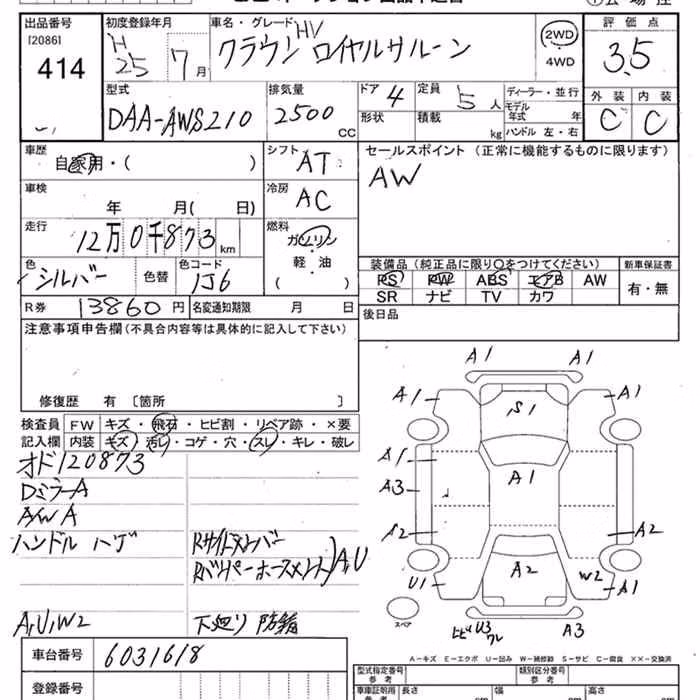 出品番号 初度登録年月 車名・グレード 評価点
[2086]
414
H25 7月
クラウン HV ロイヤルサルーン
2WD
4WD
3.5
型式 排気量 ドア 定員 ディーラー・並行 外装 内装
DAA-AWS210 2500 CC 4 5人
形状 積載 kg モデル年式 年
ハンドル 左・右
C C
車歴 シフト セールスポイント (正常に機能するものに限ります)
自家用・( ) AT AW
車検 冷房
年 月( 日) AC
走行 燃料
12万0千873km ガソリン
軽・油
( )
色 色替 色コード
シルバー 1J6
装備品 (純正品に限り○をつけてください) 新車保証書
PS PW ABS エアB AW 有・無
SR ナビ TV カワ
R券 13860円 名変通知期限 月 日
後日品
注意事項申告欄 (不具合内容等は具体的に記入して下さい)
修復歴 有 [箇所 ]
検査員 FW キズ・飛石・ヒビ割・リペア跡・×要
記入欄 内装 キズ・汚レ・コゲ・穴・スレ・キレ・破レ
オド120873
DミラーA
A/W A
ハンドル ハゲ
A,U,W2 下廻り 防錆
A1
A1 A1
S1
A1
A1
A3
A2 A2
A2
U1 W2 A1
スペア
ヒビ U3 ワレ A3
A-キズ E-エクボ U-凹み W-補修跡 S-サビ C-腐食 ××-交換済
車台番号 6031618
登録番号
型式指定番号 参考 類別区分番号 参考
車車証明用 参考 長さ cm 幅 cm 高さ cm